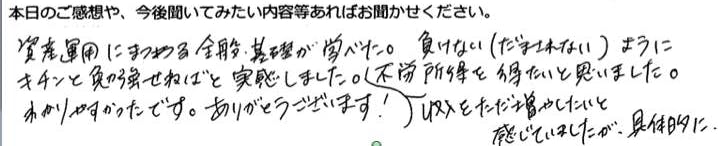 本日のご感想や、今後聞いてみたい内容等あればお聞かせください。
資産運用にまつわる全般・基礎が学べた。負けない(だまされない)ように
キチンと勉強せねばと実感しました。不労所得を得たいと思いました。
わかりやすかったです。ありがとうございます!
収入をただ増やしたいと
感じていましたが、具体的に、